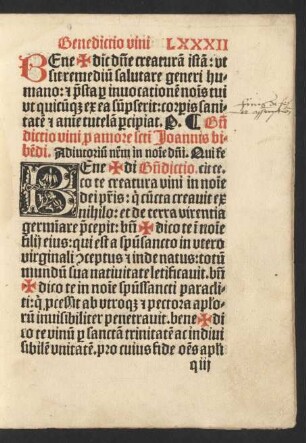 Benedictio vini LXXXII
BEne ✠ dic dñe creaturã istã: vt
sit remediũ salutare generi hu-
mano: ⁊ p̃sta p̲ inuocationẽ noĩs tui
vt quicũq̃ ex ea sũpserit: corp̲is sani
tatẽ ⁊ aĩe tutelã p̲cipiat. P. ¶ Bñ
dictio vini p̲ amore sctĩ Joannis bi
bẽdi. Adiutoriũ nr̃m in noĩe dñi. Qui fe
BEne ✠ di Bñdictio. cit ⁊c.
co te creatura vini in noĩe
dei p̃ris: q̃ cũcta creauit ex
nihilo: et de terra virentia
germĩare p̃cepit: bñ ✠ dico te ĩ noĩe
filij eius: qui est a spũsancto in vtero
virginali ↄceptus ⁊ inde natus: totũ
mundũ sua natiuitate letificauit. bñ
✠ dico te in noĩe spũssancti paracli
ti: q̃ p̲cessit ab vtroq̃ ⁊ pectora aplo
rũ inuisibiliter penetrauit. bene ✠ di
co te vinũ p̲ sanctã trinitatẽ ac indiui
sibilẽ vnitatẽ. pro cuius fide oẽs apli
q iij